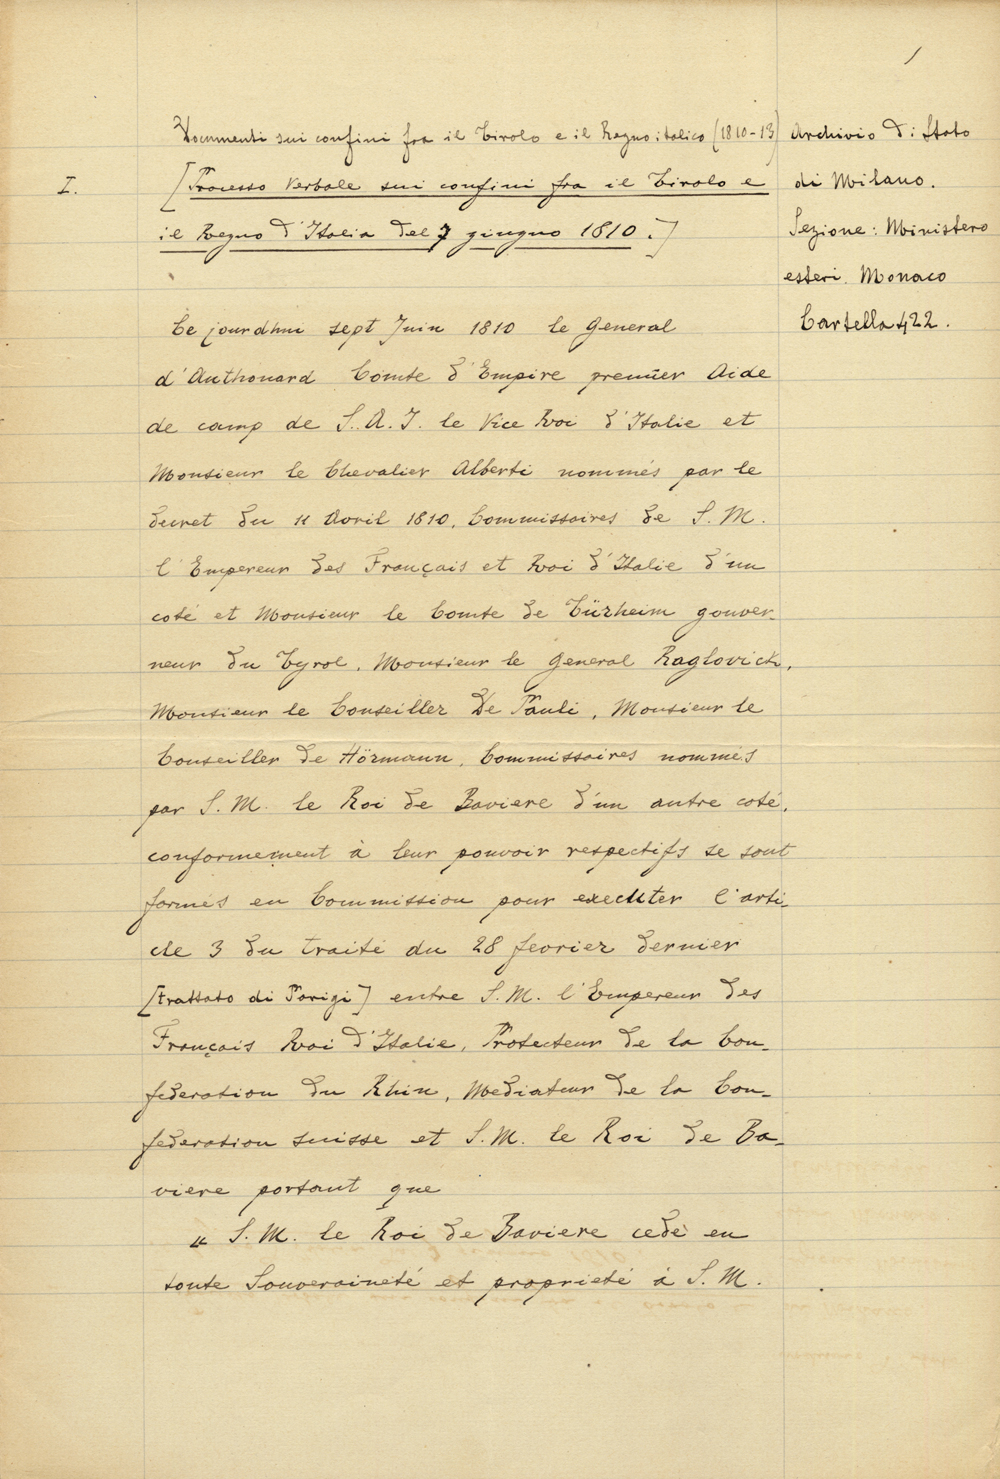 1
Documenti sui confini fra il Tirolo e il Regno italico (1810-13)
I.
[Processo Verbale sui confini fra il Tirolo e
il Regno d'Italia del 7 giugno 1810.]
Archivio di Stato
di Milano.
Sezione: Ministero
esteri. Monaco
Cartella 422.
Ce jourdhui sept Juin 1810 le General
d'Anthouard Comte d'Empire premier Aide
de camp de S. A. I. le Vice Roi d'Italie et
Monsieur le Chevalier Alberti nommés par le
decret du 11 Avril 1810, Commissaires de S. M.
l'Empereur des Français et Roi d'Italie d'un
coté et Monsieur le Comte de Türheim gouver-
neur du Tyrol, Monsieur le General Raglovich,
Monsieur le Conseiller De Pauli, Monsieur le
Conseiller de Hörmann, Commissaires nommés
par S. M. le Roi de Baviere d'un autre coté,
conformement à leur pouvoir respectifs se sont
formés en Commission pour executer l'arti-
cle 3 du traité du 28 fevrier dernier
[trattato di Parigi] entre S. M. l'Empereur des
Français Roi d'Italie, Protecteur de la Con-
federation du Rhin, Mediateur de la Con-
federation suisse et S. M. le Roi de Ba-
viere portant que
„ S. M. le Roi de Baviere cede en
toute Souveraineté et proprieté à S. M.